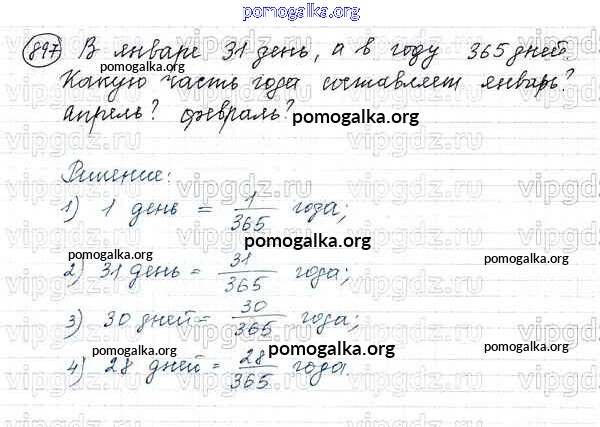 pomogalka.org
897) В январе 31 день, а в году 365 дней.
pomogalka.org
Какую часть года составляет январь?
апрель? февраль?
pomogalka.org
vipgdz.ru vipgdz.ru vipgdz.ru
Решение:
1) 1 день = 1/365 года;
pomogalka.org
pomogalka.org pomogalka.org
2) 31 день = 31/365 года;
3) 30 дней = 30/365 года;
pomogalka.org pomogalka.org
4) 28 дней = 28/365 года.